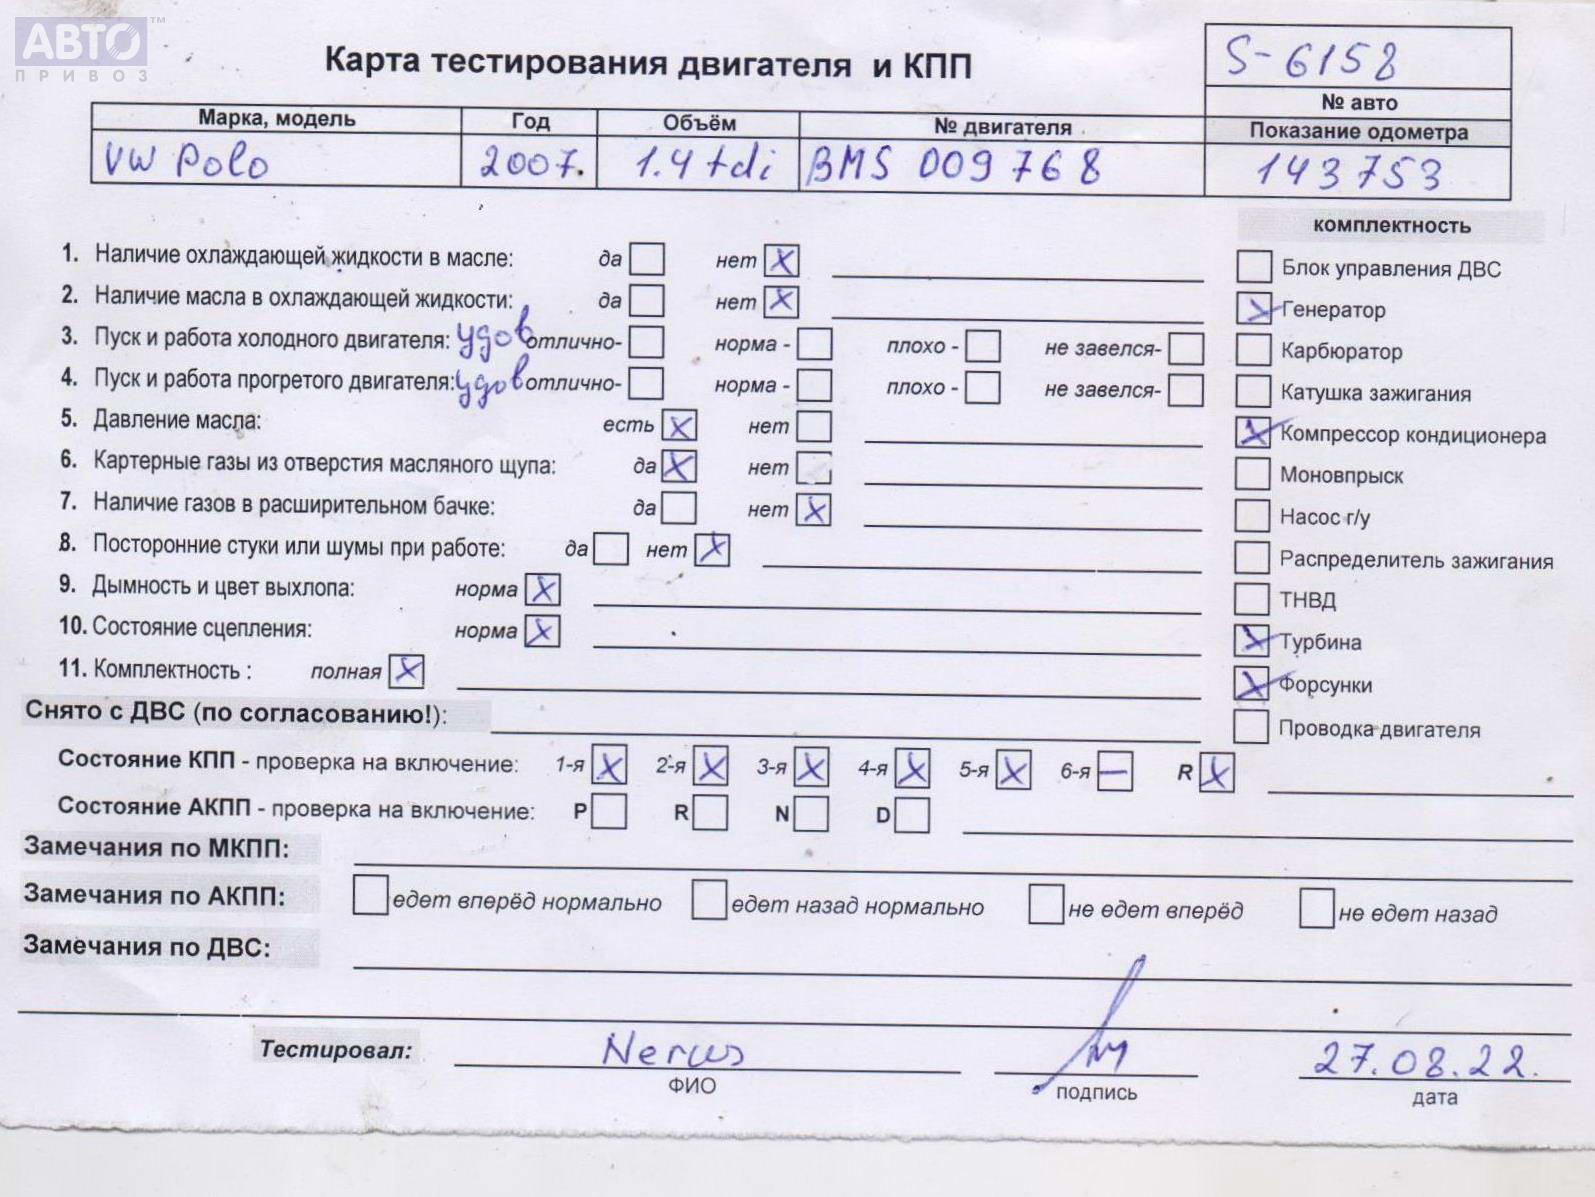 АВТО™
ПРИВОЗ
Карта тестирования двигателя и КПП
S-6158
№ авто
Марка, модель Год Объём № двигателя Показание одометра
VW Polo 2007. 1.4 tdi BMS 009768 143753
комплектность
1. Наличие охлаждающей жидкости в масле: да нет X
Блок управления ДВС
2. Наличие масла в охлаждающей жидкости: да нет X
X Генератор
3. Пуск и работа холодного двигателя: удов отлично- норма - плохо - не завелся-
Карбюратор
4. Пуск и работа прогретого двигателя: удов отлично- норма - плохо - не завелся-
Катушка зажигания
5. Давление масла: есть X нет
X Компрессор кондиционера
6. Картерные газы из отверстия масляного щупа: да X нет
Моновпрыск
7. Наличие газов в расширительном бачке: да нет X
Насос г/у
8. Посторонние стуки или шумы при работе: да нет X
Распределитель зажигания
9. Дымность и цвет выхлопа: норма X
ТНВД
10. Состояние сцепления: норма X
X Турбина
11. Комплектность : полная X
X Форсунки
Снято с ДВС (по согласованию!):
Проводка двигателя
Состояние КПП - проверка на включение: 1-я X 2-я X 3-я X 4-я X 5-я X 6-я — R X
Состояние АКПП - проверка на включение: P R N D
Замечания по МКПП:
Замечания по АКПП: едет вперёд нормально едет назад нормально не едет вперёд не едет назад
Замечания по ДВС:
Тестировал: 27.08.22.
ФИО подпись дата